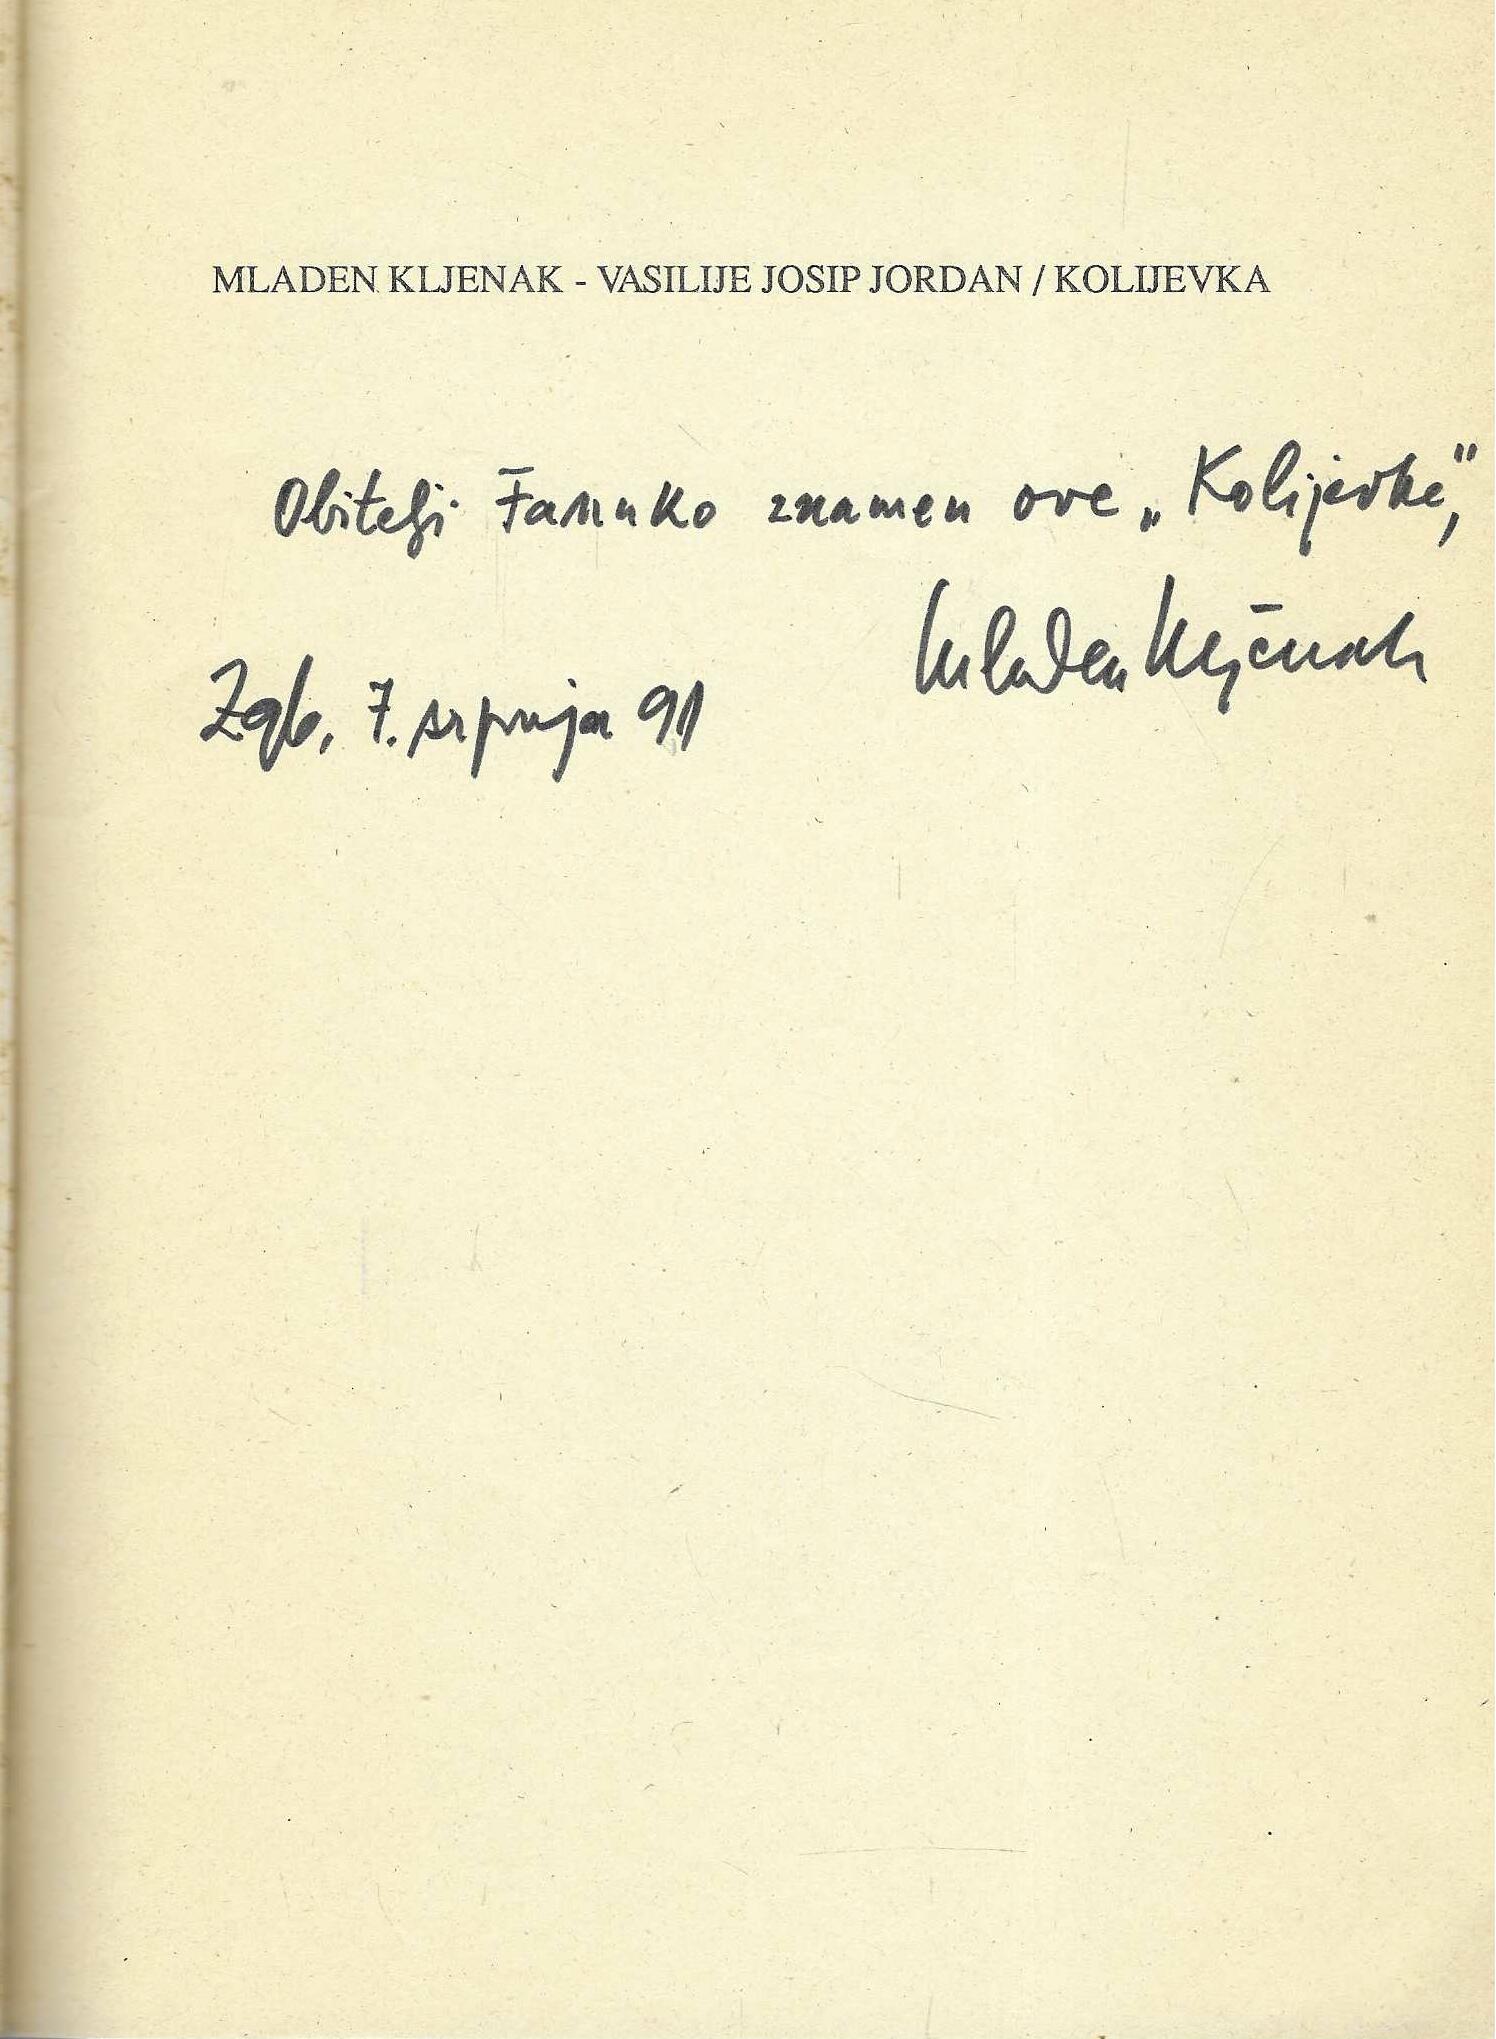 MLADEN KLJENAK - VASILIJE JOSIP JORDAN / KOLIJEVKA
Obitelji Fanuko znamen ove „Kolijevke",
Mladen Kljenak
Zgb, 7. srpnja 91